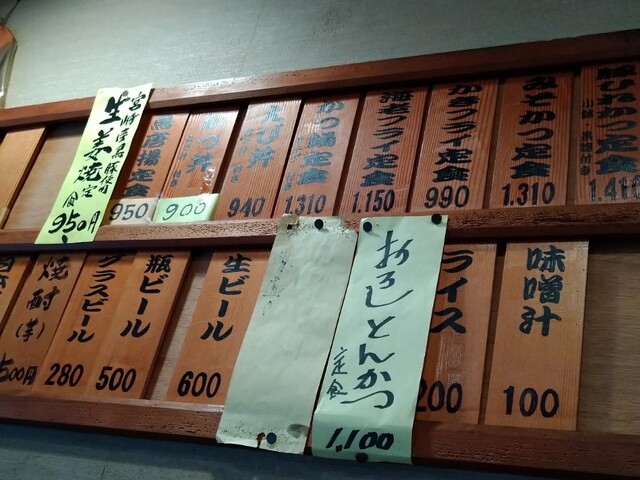 宮崎産黒豚使用
生姜焼定食
950円
鳥唐揚定食
950
かつ丼
900
えび丼
940
かつ鍋定食
1.310
海老フライ定食
1.150
かきフライ定食
990
みそかつ定食
1.310
豚ひれかつ定食
1.410
焼酎(芋)
500円
グラスビール
280
瓶ビール
500
生ビール
600
おろしとんかつ
定食
1.100
ライス
200
味噌汁
100